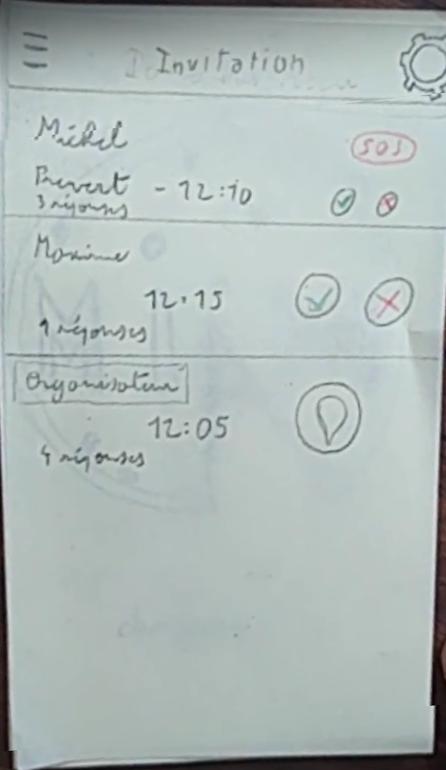 Invitation
Michel
SOS
Prevert - 12:10
3 réponses
Maxime
12:15
1 réponses
Organisateur
12:05
4 réponses